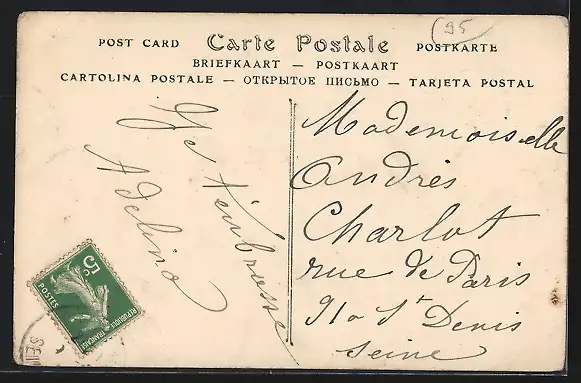 95
POST CARD Carte Postale POSTKARTE
BRIEFKAART — POSTKAART
CARTOLINA POSTALE — ОТКРЫТОЕ ПИСЬМО — TARJETA POSTAL
Je t'embrasse
Adelina
Mademoiselle
Andrés
Charlot
rue de Paris
91 a St Denis
Seine
5c
POSTES
REPUBLIQUE FRANÇAISE
SEI